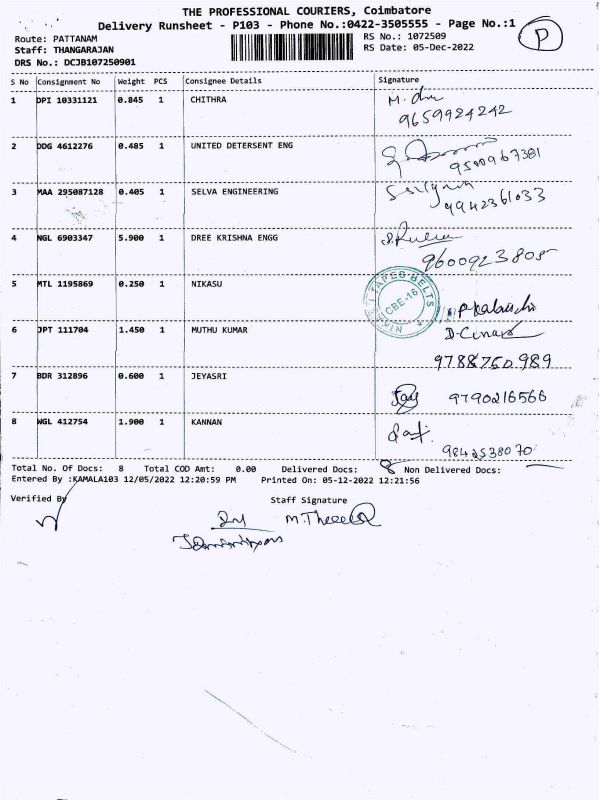 THE PROFESSIONAL COURIERS, Coimbatore
Delivery Runsheet - P103 - Phone No.:0422-3505555 - Page No.:1
Route: PATTANAM RS No.: 1072509
Staff: THANGARAJAN RS Date: 05-Dec-2022
P
DRS No.: DCJB107250901
S No Consignment No Weight PCS Consignee Details Signature
1 DPI 10331121 0.845 1 CHITHRA
9659924242
2 DDG 4612276 0.485 1 UNITED DETERSENT ENG
9500967381
3 MAA 295087128 0.405 1 SELVA ENGINEERING
9942361033
4 NGL 6903347 5.900 1 DREE KRISHNA ENGG
9600923805
5 MTL 1195869 0.250 1 NIKASU
TAPES BELTS
CBE-16
6 JPT 111704 1.450 1 MUTHU KUMAR
9788750989
7 BDR 312896 0.600 1 JEYASRI
9790216566
8 WGL 412754 1.900 1 KANNAN
9842538070
Total No. Of Docs: 8 Total COD Amt: 0.00 Delivered Docs: 8 Non Delivered Docs:
Entered By :KAMALA103 12/05/2022 12:20:59 PM Printed On: 05-12-2022 12:21:56
Verified By Staff Signature